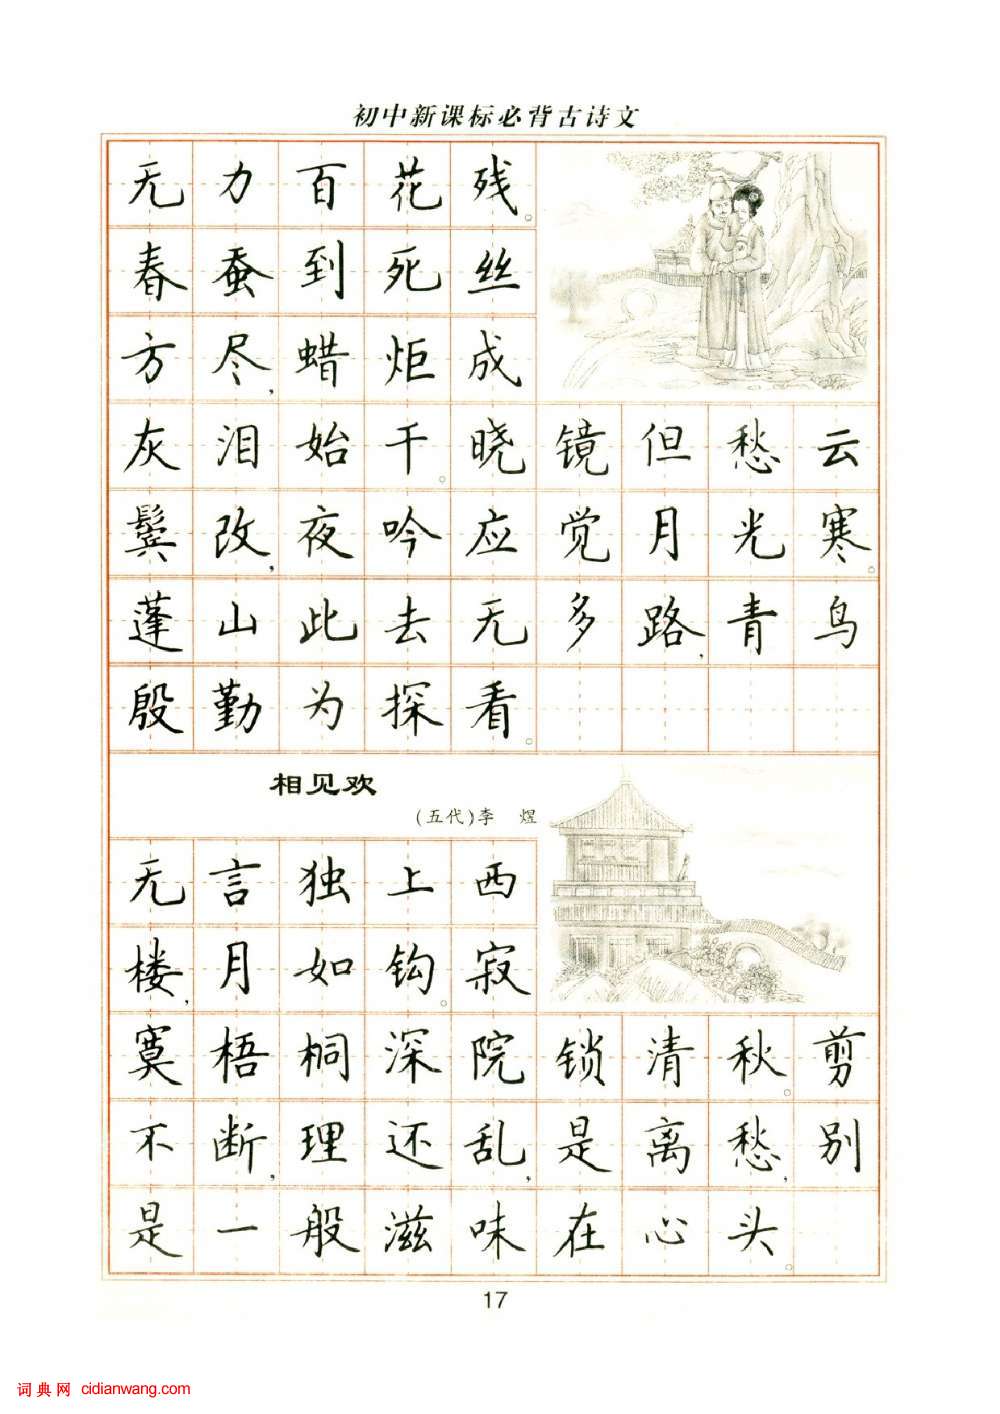 初中新课标必背古诗文
无力百花残。
春蚕到死丝
方尽,蜡炬成
灰泪始干。晓镜但愁云
鬓改,夜吟应觉月光寒。
蓬山此去无多路,青鸟
殷勤为探看。
相见欢
(五代)李 煜
无言独上西
楼,月如钩。寂
寞梧桐深院锁清秋。剪
不断,理还乱,是离愁,别
是一般滋味在心头。
17
词典网 cidianwang.com